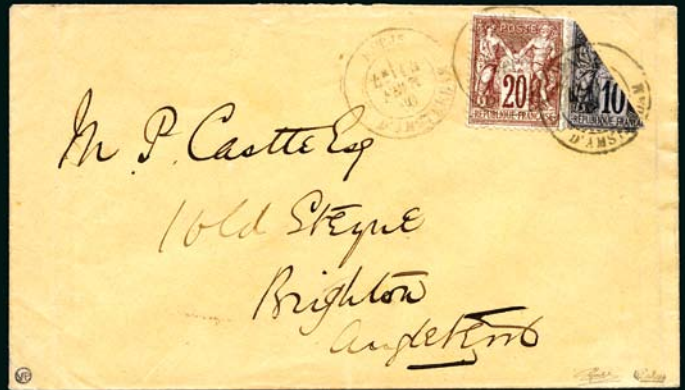 POSTE
20
RÉPUBLIQUE FRANÇAISE
10
RÉPUBLIQUE FRANÇ
PARIS
R. D'AMSTERDAM
M. P. Castle Esq
1 Old Steyne
Brighton
Angleterre